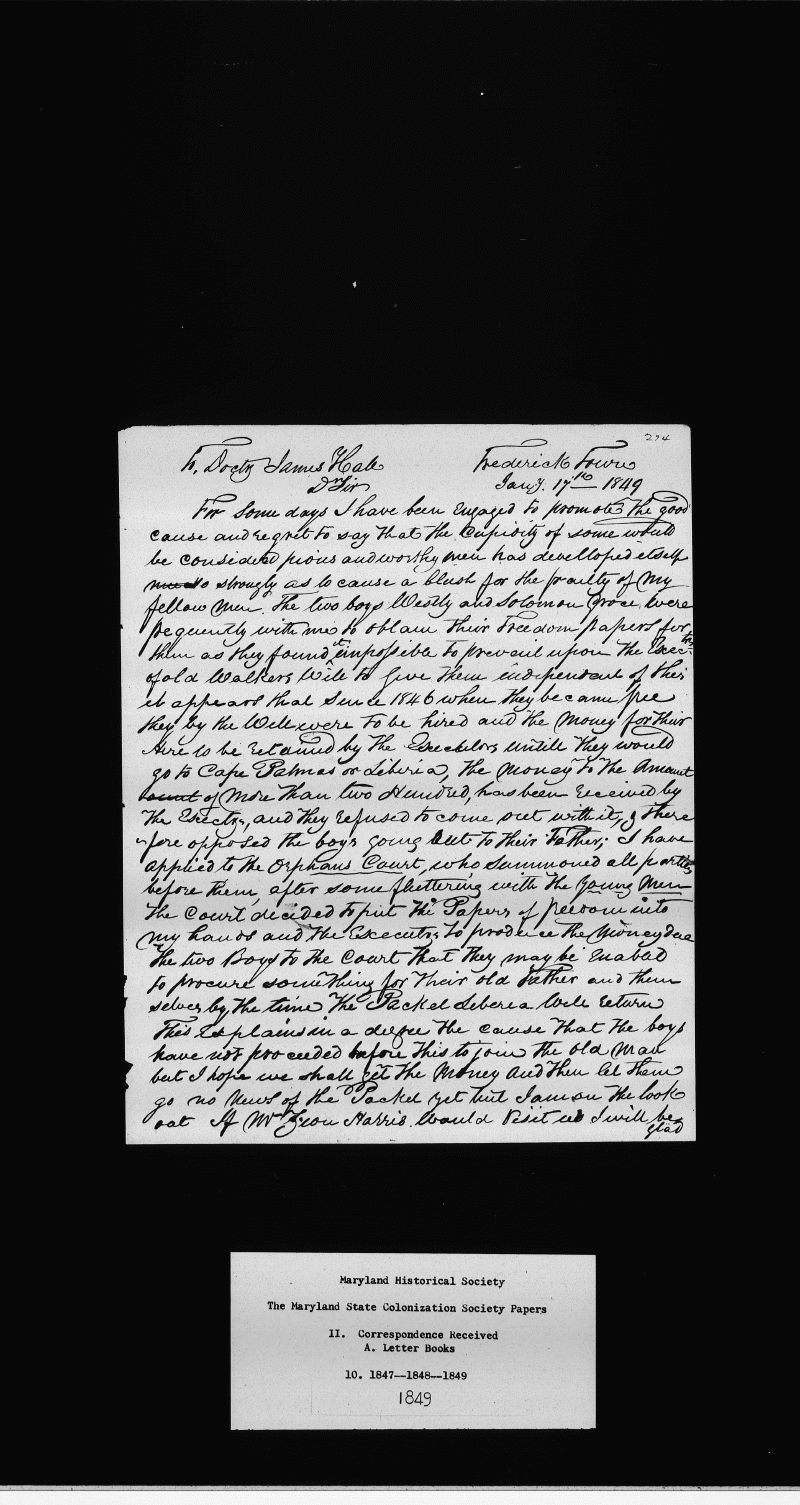 294
To, Doctr James Hall Frederick Town
Dr Sir Jany. 17th 1849
For some days I have been Engaged to promote the good
cause and regret to say that the Cupidity of some would
be considered pious and worthy men has developed itself
so strongly as to cause a blush for the frailty of my
fellow men. The two boys Westly and Solomon Groce, were
frequently with me to obtain their Freedom papers for
them as they found it impossible to prevail upon the Exec
of old Walkers Will to Give them independent of this
it appears that since 1846 when they became free
they by the Will were to be hired and the money for their
hire to be retained by the Executors untill they would
go to Cape Palmas or Liberia, the money to the Amount
of More than two Hundred, has been received by
the Exectrs, and they refused to come out with it, & there
fore opposed the boys going out to their Father; I have
applied to the Orphans Court, who summoned all parties
before them, after some fluttering with the young Men
the Court decided to put the Papers of freedom into
my hands and the Executrs to produce the Money due
the two Boys to the Court that they may be Enabled
to procure something for their old Father and them
selves by the time the Packet Liberia will return
This Explains in a degree the cause that the boys
have not proceeded before this to join the old man
but I hope we shall get the Money and then let them
go no News of the Packet yet but I am on the look
out If Mr Zion Harris would visit us I will be
glad
Maryland Historical Society
The Maryland State Colonization Society Papers
II. Correspondence Received
A. Letter Books
10. 1847--1848--1849
1849